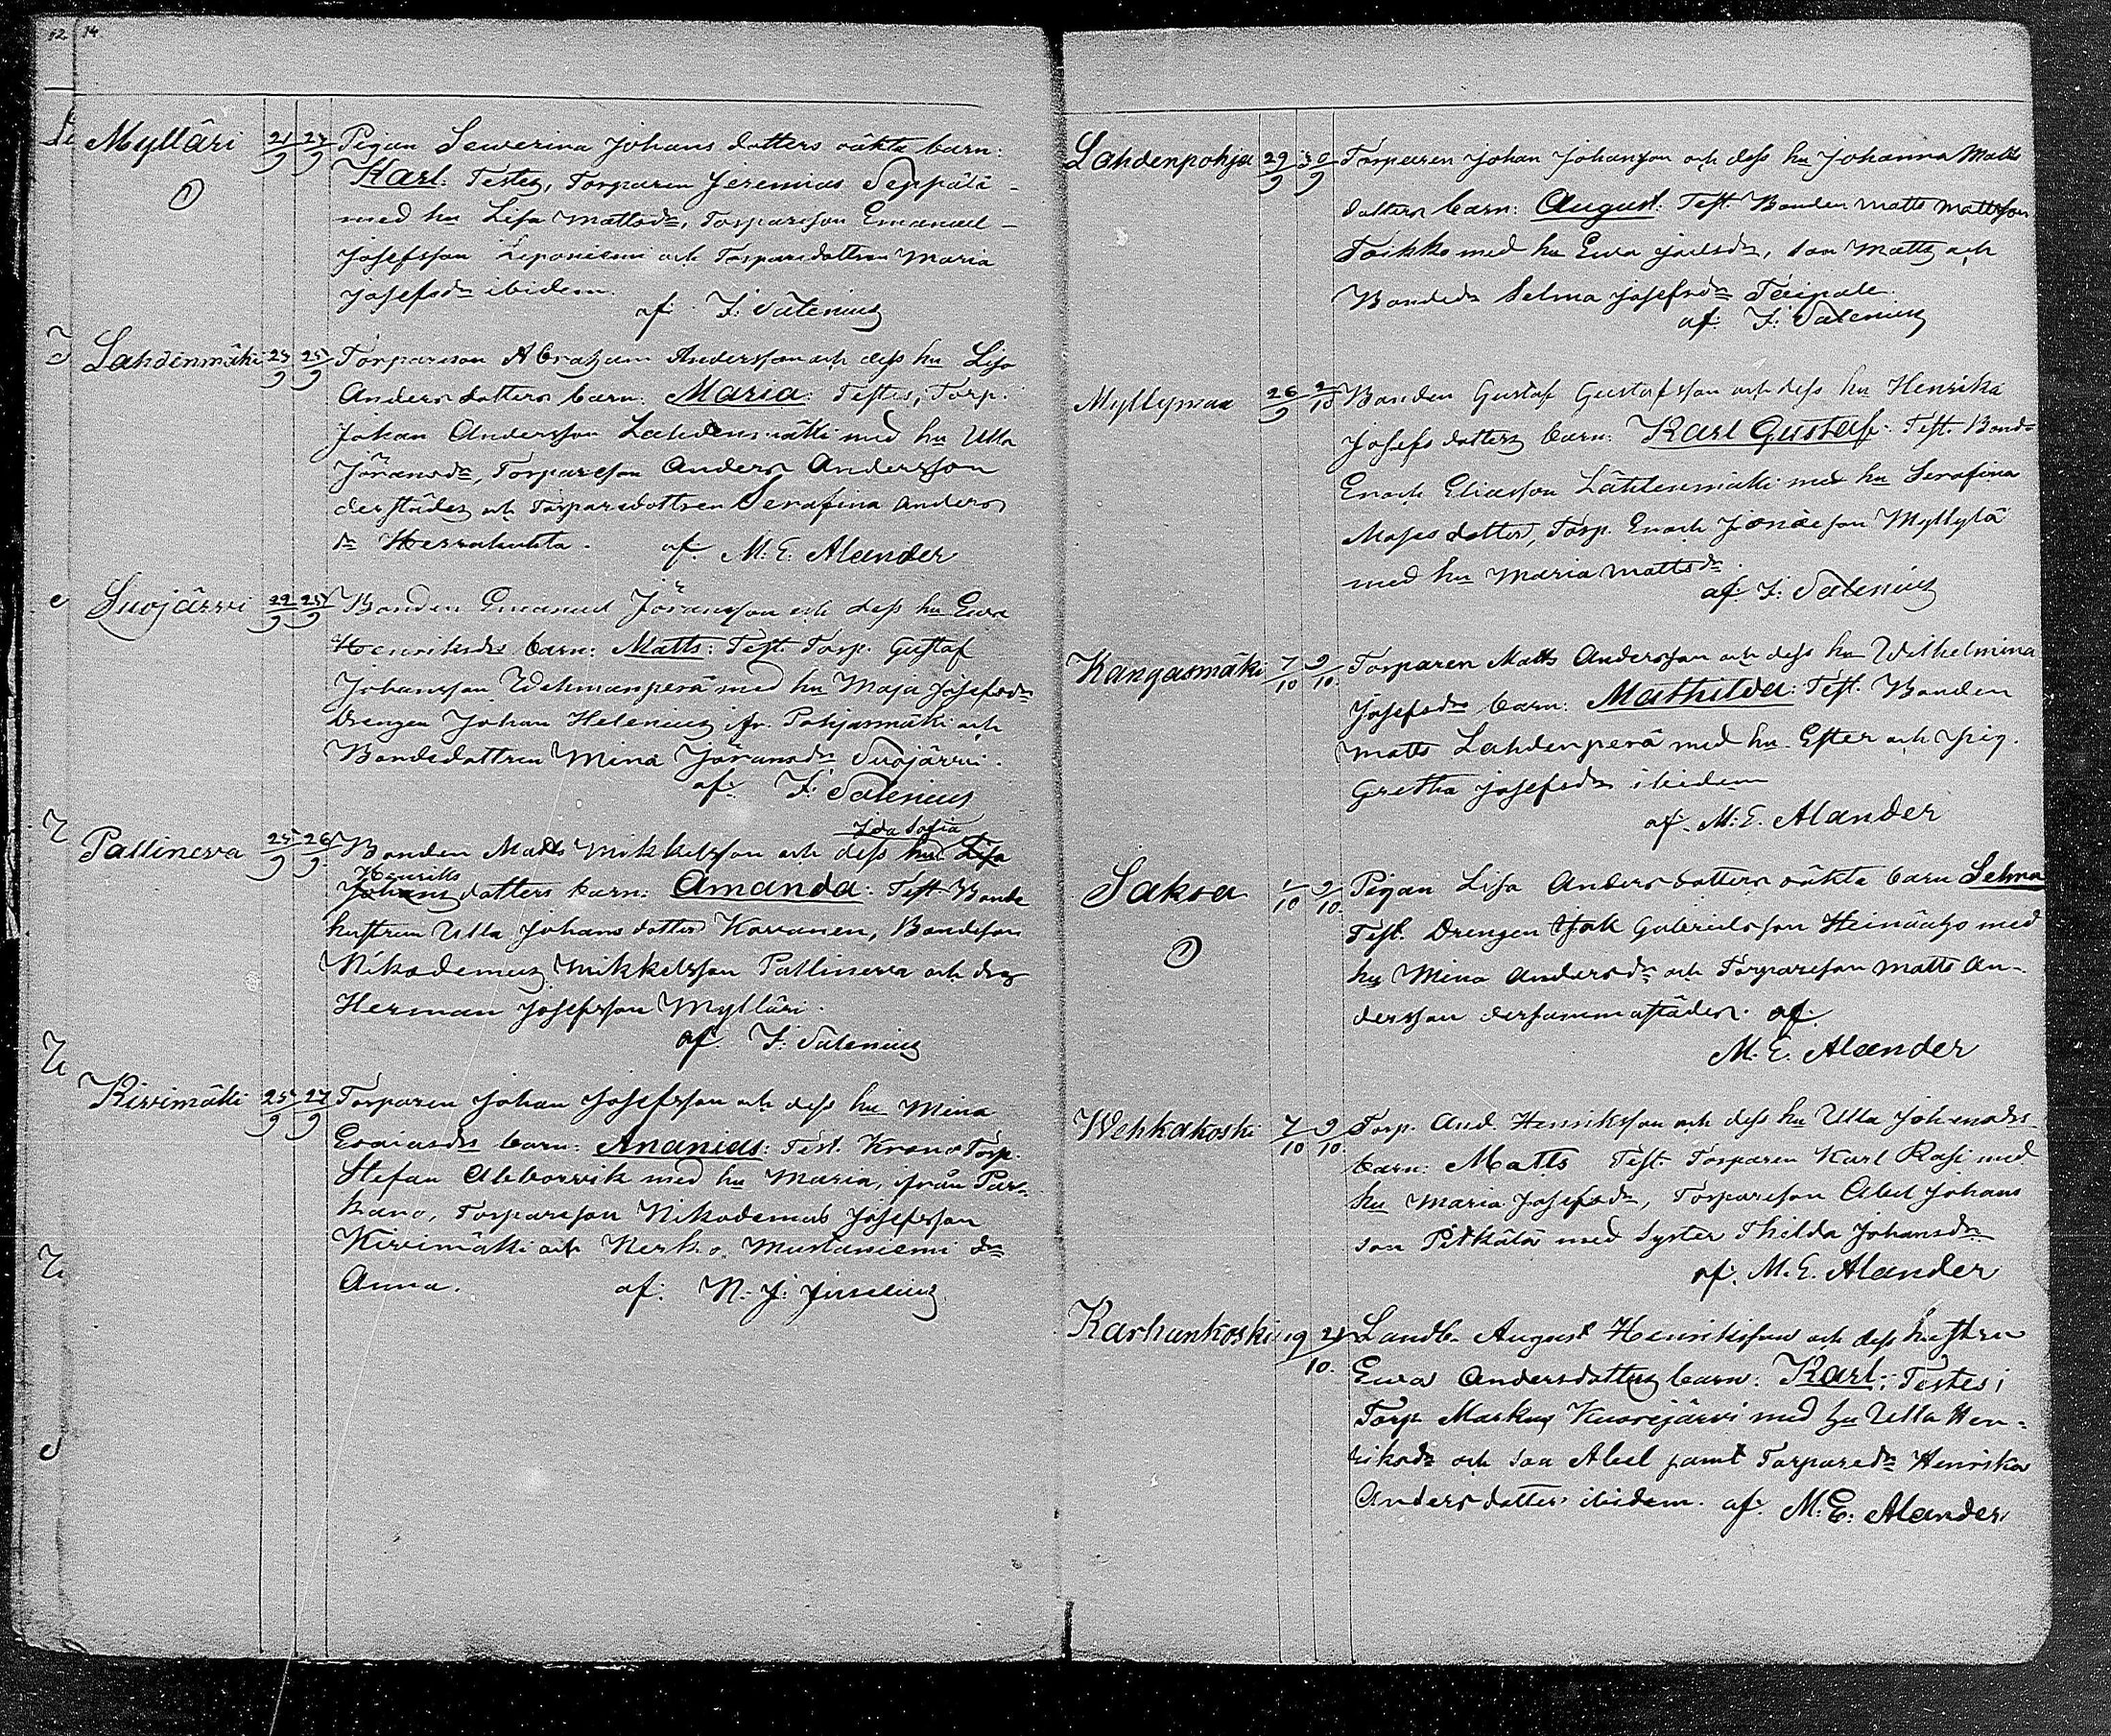 12 14
Mylläri 21/9 27/9 Pigan Sewerina Johans dotters oäkta barn:
Karl. Testes, Torparen Jeremias Seppälä
med hu Lisa Mattsdr, Torpareson Emanuel
Josefsson Leponiemi och Torparedottren Maria
Josefsdr ibidem.
af. F: Salenius
Lahdenmäki 23/9 25/9 Torpareson Abraham Andersson och dess hu Lisa
Anders dotters barn: Maria: Testes, Torp.
Johan Andersson Lahdenmäki med hu Ulla
Jöransdr, Torpareson Anders Andersson
derstädes och Torparedottren Serafina Anders
dr
af. M. E. Alander
Suojärvi 22/9 25/9 Bonden Emanuel Jöransson och dess hu Ewa
Henriksdrs barn: Matts: Test. Torp. Gustaf
Johansson Wehmanperä med hu Maja Josefsdr
Drengen Johan Helenius ifr. Pohjasmäki och
Bondedottren Mina Jöransdr Suojärvi.
af. F: Salenius
Ida Sofia
Pallineva 25/9 26/9 Bonden Matts Mikkelsson och dess hu Lisa
Henriks
Johans dotters barn: Amanda: Test Bonde
hustrun Ulla Johans dotter Korvanen, Bondeson
Nikodemus Mikkelsson Pallineva och drg
Herman Josefsson Mylläri.
af F: Salenius
Kivimäki 25/9 27/9 Torparen Johan Josefsson och dess hu Mina
Esaiasdrs barn: Ananias: Test. Krono Torp.
Stefan Abborrvik med hu Maria, ifrån Par-
kano, Torpareson Nikodemus Josefsson
Kivimäki och Nerko Mustaniemi dr
Anna. af: N. J.
Lahdenpohja 29/9 30/9 Torparen Johan Johansson och dess hu Johanna Matts
dotters barn: August: Test. Bonden Matts Mattsson
Toikko med hu Ewa Joelsdr, son Matts och
Bondedr Selma Josefsdr Taipale.
af. F: Salenius
Myllymaa 26/9 2/10 Bonden Gustaf Gustafsson och dess hu Henrika
Josefs dotters barn: Karl Gustaf. Test. Bond-
Enoch Eliasson Lähdenmäki med hu Serafina
Moses dotter, Torp. Enoch Jonæson Myllylä
med hu Maria Mattsdr.
af. F: Salenius
Kangasmäki 7/10 9/10. Torparen Matts Andersson och dess hu Wilhelmina
Josefsdrs barn: Mathilda: Test. Bonden
Matts Lahdenperä med hu Ester och pig.
Gretha Josefsdr ibidem
af. M: E. Alander
Saksa 1/10 9/10. Pigan Lisa Anders dotters oäkta barn Selma
Test. Drengen Isak Gabrielsson Heinäaho med
hu Mina Andersdr och Torpareson Matts An-
dersson dersammastädes. af.
M. E. Alander
Wehkakoski 7/10 9/10. Torp. And. Henriksson och dess hu Ulla Johansdrs
barn: Matts Test. Torparen Karl Rasi med
hu Maria Josefsdr, Torpareson Abel Johans
son Pitkälä med Syster Thilda Johansdr
af. M. E. Alander
Karhunkoski 19 21/10. Landb. August Henriksson och dess hustru
Ewa Andersdotters barn: Karl: Testes;
Torp Markus Kuorejärvi med hu Ulla Hen-
riksdr och son Abel samt Torparedr Henrika
Anders dotter ibidem. af. M: E: Alander